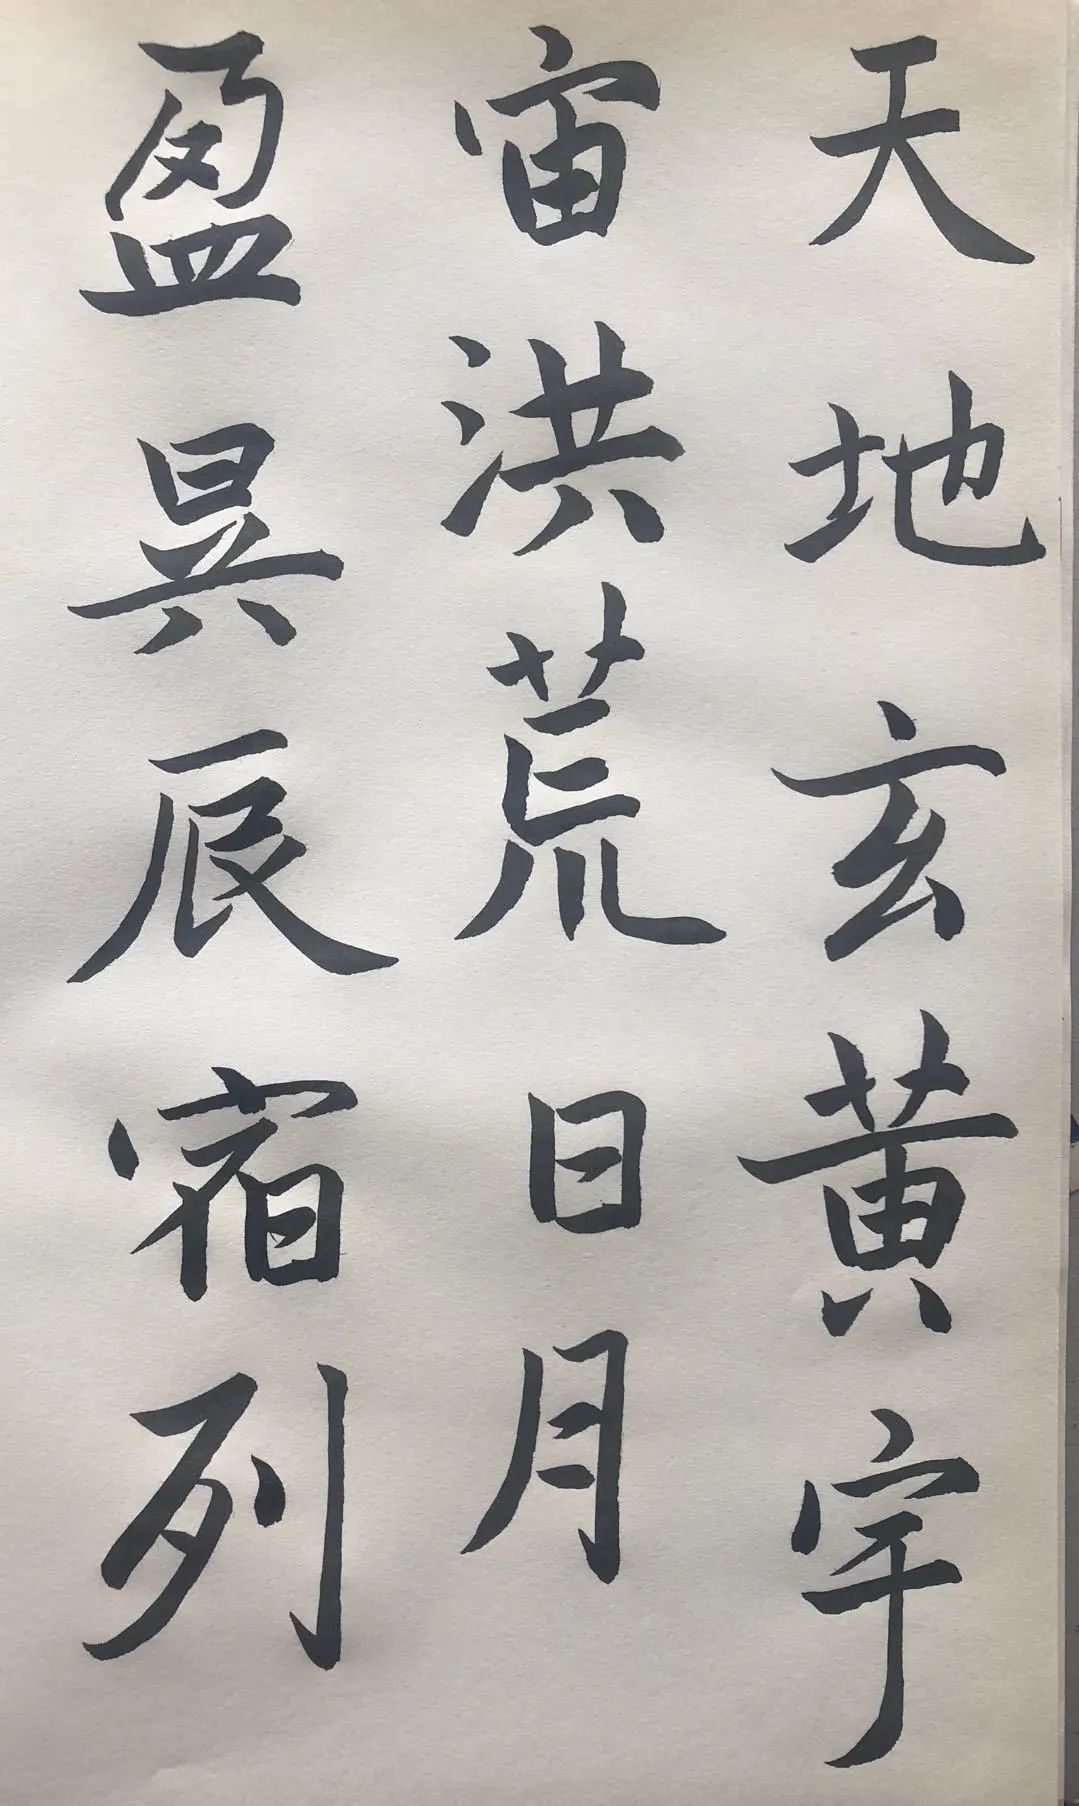 天地玄黄宇
宙洪荒日月
盈昃辰宿列